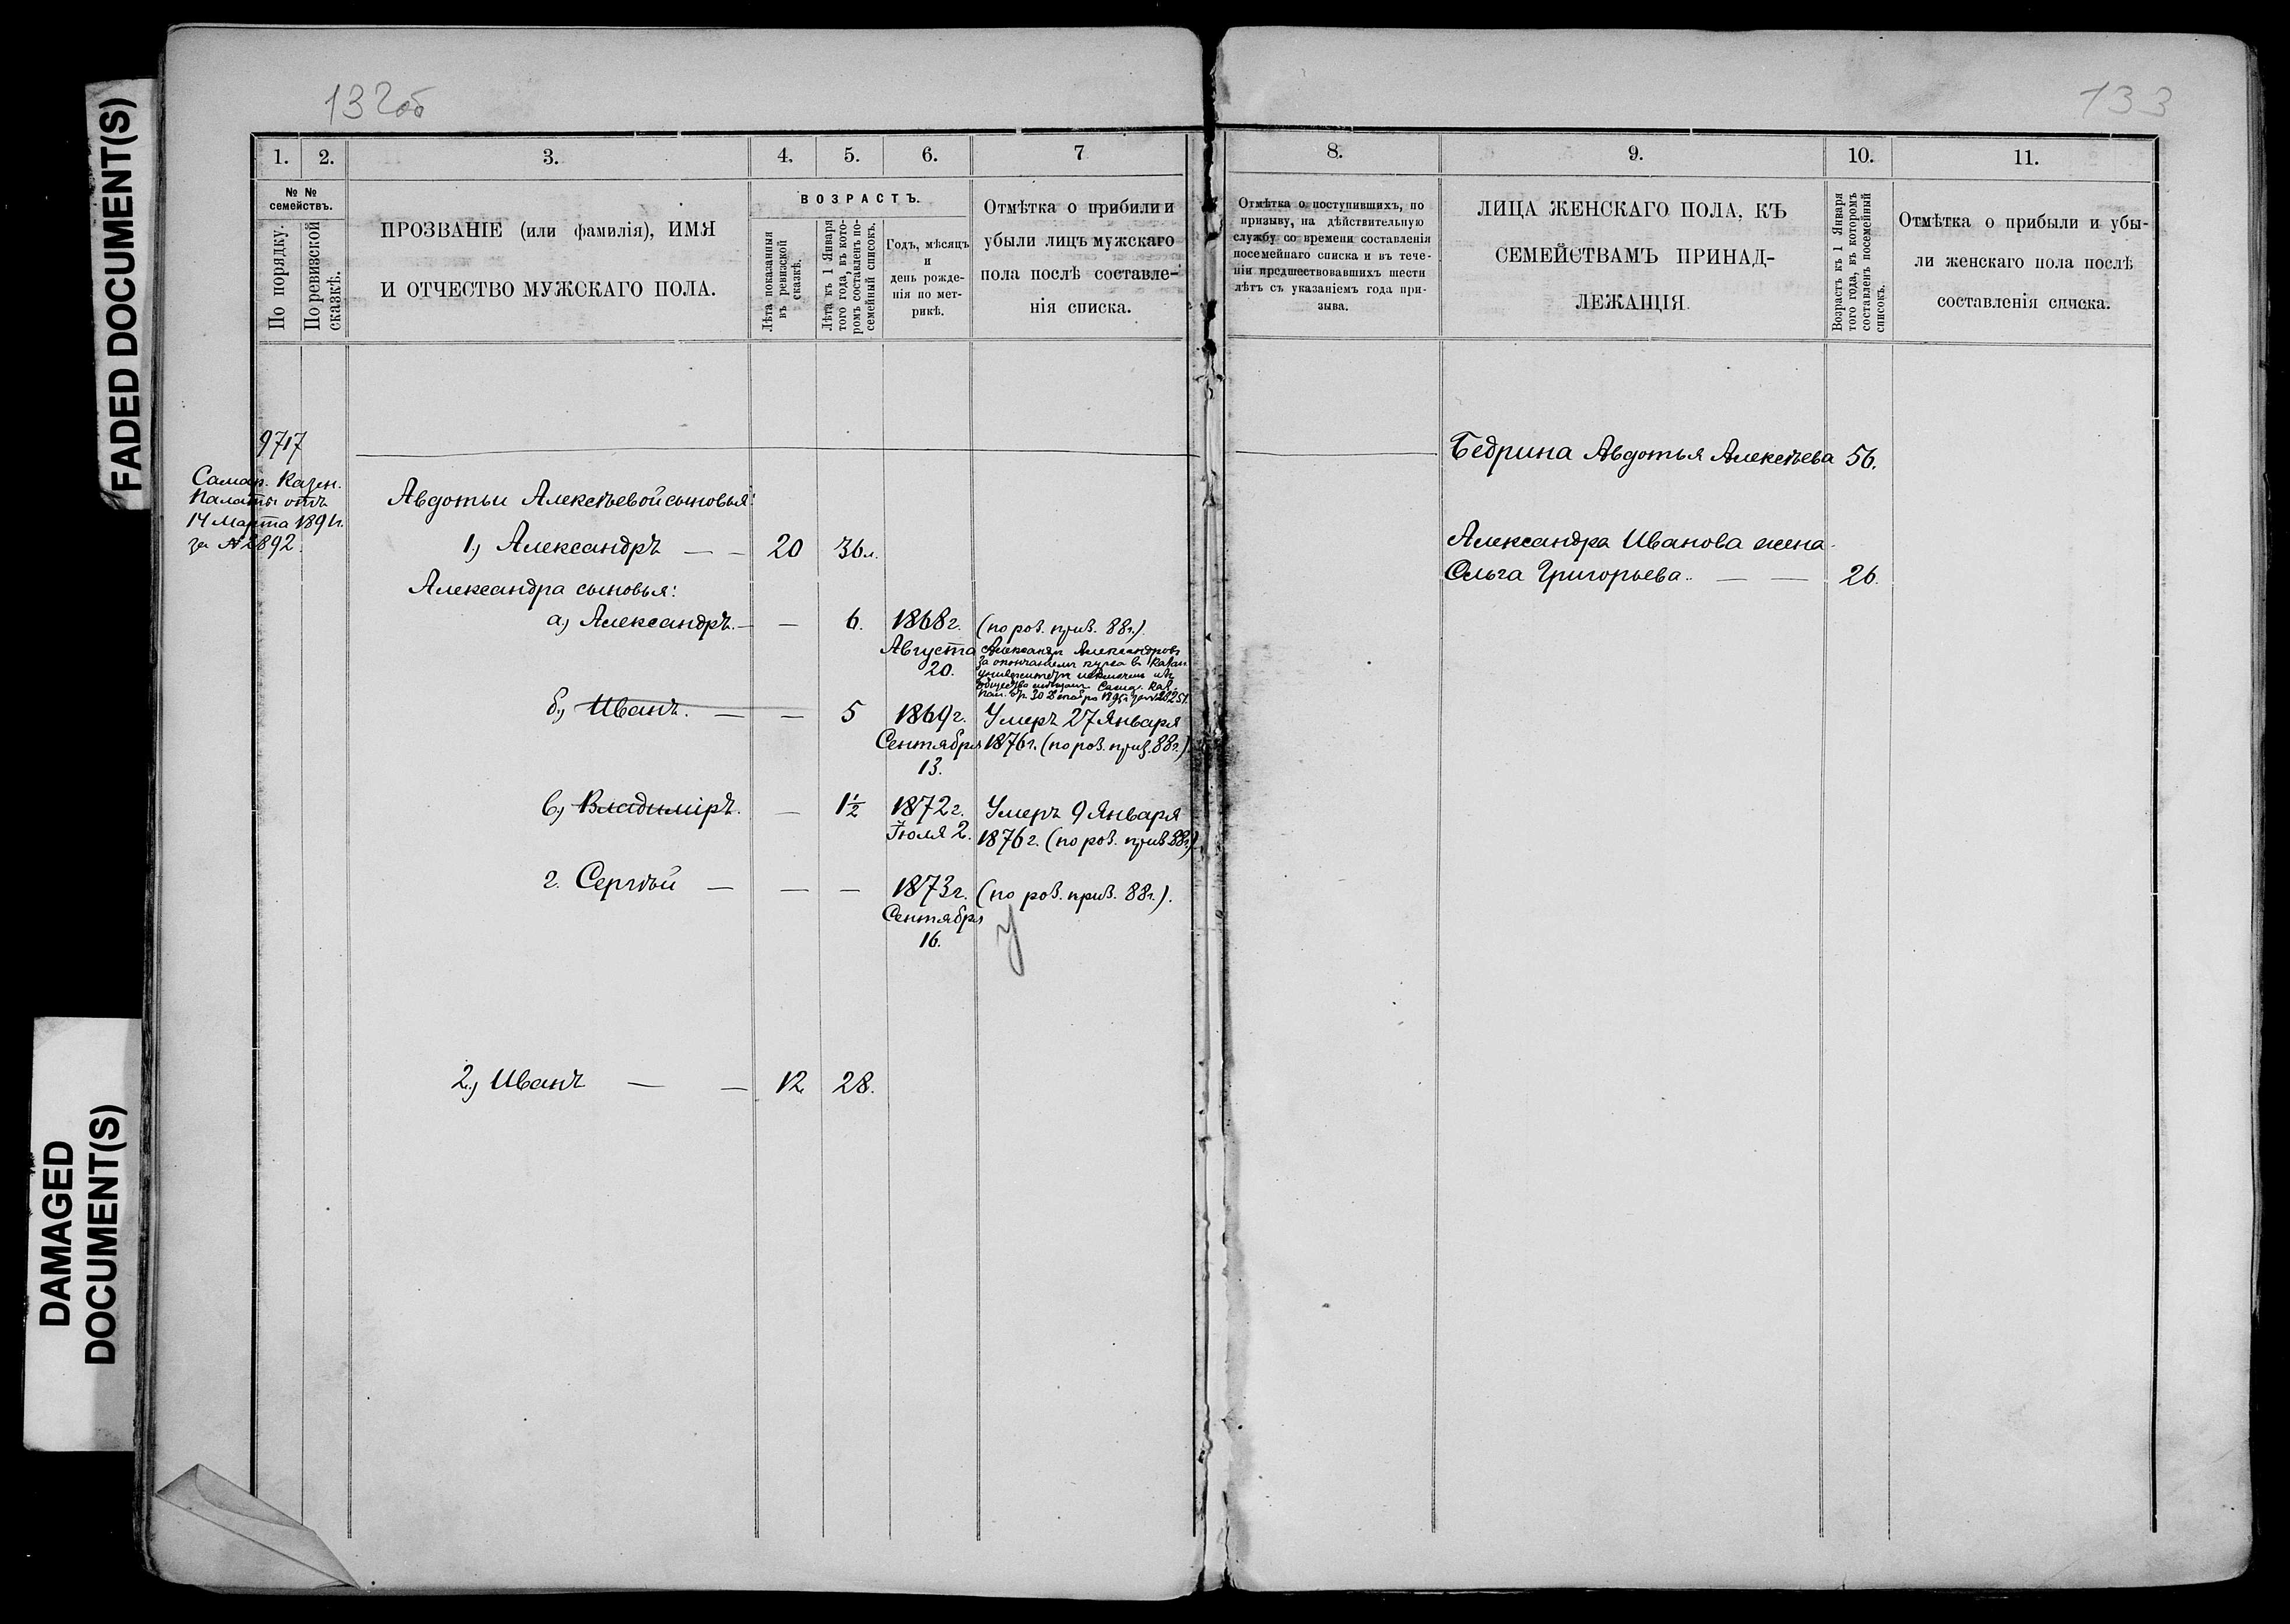 FADED DOCUMENT(S)
DAMAGED
DOCUMENT(S)
132об
1.
2.
3.
4.
5.
6.
7
№ №
семействъ.
По порядку.
По ревизской
сказкѣ.
ПРОЗВАНІЕ (или фамилія), ИМЯ
И ОТЧЕСТВО МУЖСКАГО ПОЛА.
ВОЗРАСТЪ.
Лѣта показанныя
въ ревизской
сказкѣ.
Лѣта къ 1 Января
того года, въ кото-
ромъ составленъ по-
семейный списокъ.
Годъ, мѣсяцъ
и
день рожде-
нія по мет-
рикѣ.
Отмѣтка о прибили и
убыли лицъ мужскаго
пола послѣ составле-
нія списка.
9717
Самар. Казен.
Палаты отъ
14 Марта 1891г.
за №2892.
Авдотьи Алексѣевой сыновья:
1.) Александръ — — 20 36л.
Александра сыновья:
а.) Александръ. — — 6. 1868г. (по ров. прив. 88г.).
Августа
20.
Александръ Александровъ
за окончаніемъ курса въ Казан.
университетѣ исключенъ изъ
общества мѣщанъ Самар. Каз.
б.) Иванъ. — — 5 1869г. Умеръ 27 Января
Сентября 1876г. (по ров. прив. 88г.)
13.
в.) Владиміръ. — 1½ 1872г. Умеръ 9 Января
Іюля 2. 1876г. (по ров. прив 88г.)
г. Сергѣй — — — 1873г. (по ров. прив. 88г.).
Сентября
16.
У
2.) Иванъ — — 12 28.
133
8.
9.
10.
11.
Отмѣтка о поступившихъ, по
призыву, на дѣйствительную
службу со времени составленія
посемейнаго списка и въ тече-
ніи предшествовавшихъ шести
лѣтъ съ указаніемъ года при-
зыва.
ЛИЦА ЖЕНСКАГО ПОЛА, КЪ
СЕМЕЙСТВАМЪ ПРИНАД-
ЛЕЖАЩІЯ.
Возрастъ къ 1 Января
того года, въ которомъ
составленъ посемейный
списокъ.
Отмѣтка о прибыли и убы-
ли женскаго пола послѣ
составленія списка.
Бедрина Авдотья Алексѣева 56.
Александра Иванова жена
Ольга Григорьева. — — 26.